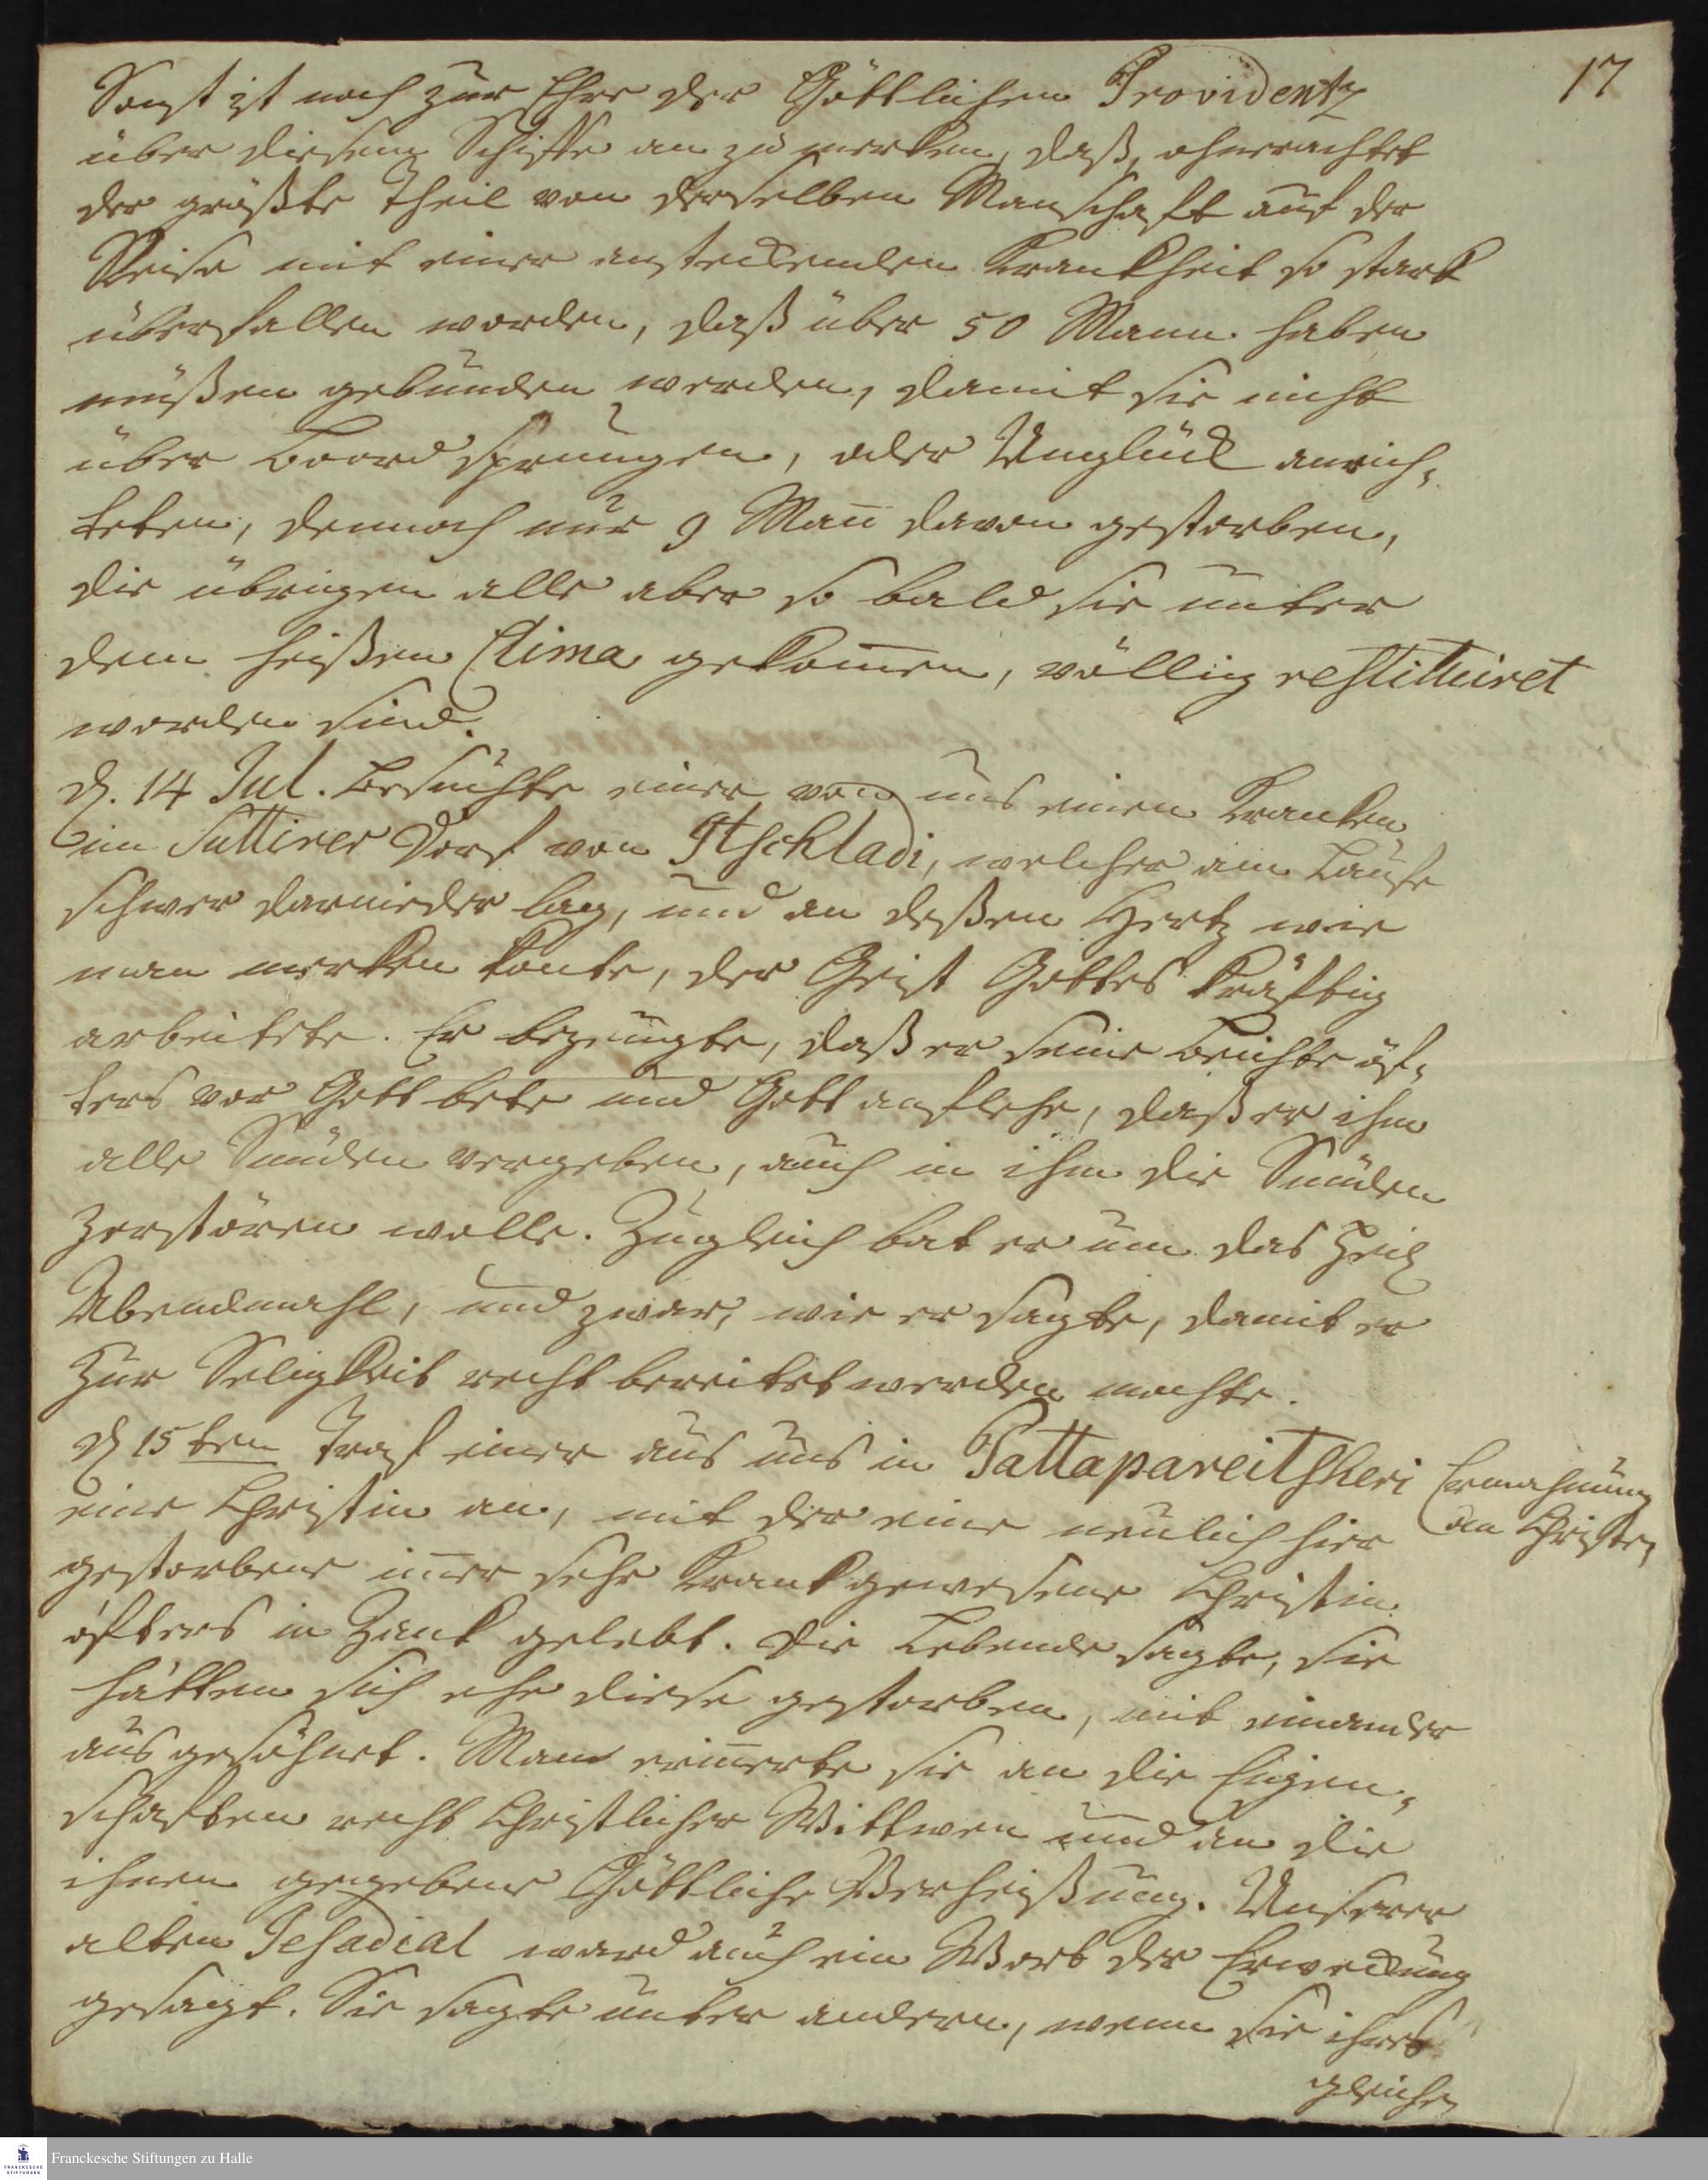 17
Sonst ist noch zur Ehre der Göttlichen Providentz
über diesem Schiffe an zu merken, daß, ohnerachtet
der größte Theil von derselben Manschaft auf der
Reise mit einer ansteckenden Krankheit so stark
überfallen worden, daß über 50 Mann haben
müßen gebunden werden, damit sie nicht
über Boord sprungen, oder Unglück anrich-
teten, dennoch nur 9 Mañ davon gestorben,
die übrigen alle aber so bald sie unter
dem heißen Clima gekom̄en, völlig restituiret
worden sind.
d. 14 Jul. besuchte einer von uns einen Kranken
im Suttirer Dorf von Itschladi, welcher am Laufe
schwer darnieder lag, und an deßen Hertz wie
man merken konte, der Geist Gottes kräftig
arbeitete. Er bezeugte, daß er seine Beichte öf-
ters vor Gott bete und Gott anflehe, daß er ihm
alle Sünden vergeben, auch in ihm die Sünden
zerstören wolle. Zugleich bat er um das Heil
Abendmahl, und zwar, wie er sagte, damit er
zur Seligkeit recht bereitet werden mochte.
d 15ten traf einer aus uns in Pattapareitscheri
eine Christin an, mit der eine neulich hier
gestorbene im̄er sehr krank gewesene Christin
öfters in Zank gelebt. Die Lebende sagte, sie
hätten sich ehe diese gestorben, mit einander
ausgesöhnet. Man erin̄erte sie an die Eigen-
schaften recht Christlicher Wittwen und an die
ihnen gegebene Göttliche Verheißung. Unserer
alten Jesadial ward auch ein Wort der Erweckung
gesagt. Sie sagte unter andern, wenn sie ihres
gleichen
Ermahnung
an Christen
Franckesche Stiftungen zu Halle
FRANCKESCHE
STIFTUNGEN